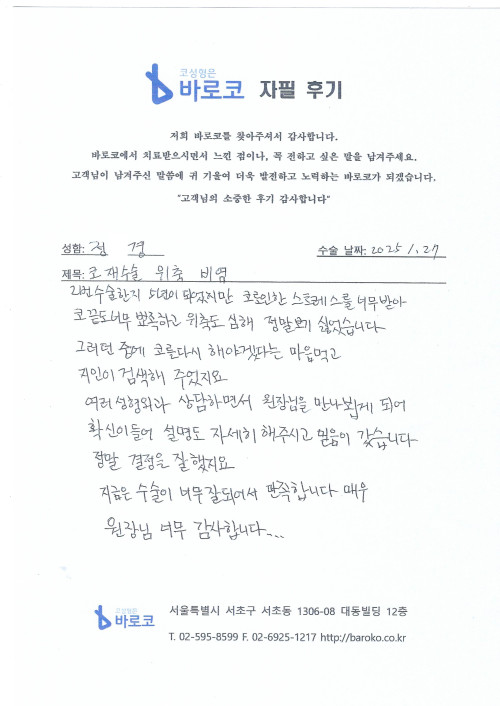 코성형은
바로코 자필 후기
저희 바로코를 찾아주셔서 감사합니다.
바로코에서 치료받으시면서 느낀 점이나, 꼭 전하고 싶은 말을 남겨주세요.
고객님이 남겨주신 말씀에 귀 기울여 더욱 발전하고 노력하는 바로코가 되겠습니다.
"고객님의 소중한 후기 감사합니다"
성함: 정 경 수술 날짜: 2025/1.27
제목: 코 재수술 위축 비염
2번수술한지 5년이 되었지만 코로인한 스트레스를 너무받아
코끝도너무 뾰족하고 위축도 심해 정말보기 싫었습니다
그러던 중에 코를다시 해야겠다는 마음먹고
지인이 검색해 주었지요
여러성형외과 상담하면서 원장님을 만나뵙게 되어
확신이들어 설명도 자세히 해주시고 믿음이 갔습니다
정말 결정을 잘했지요
지금은 수술이 너무잘되어서 만족합니다 매우
원장님 너무 감사합니다...
코성형은
바로코
서울특별시 서초구 서초동 1306-08 대동빌딩 12층
T. 02-595-8599 F. 02-6925-1217 http://baroko.co.kr